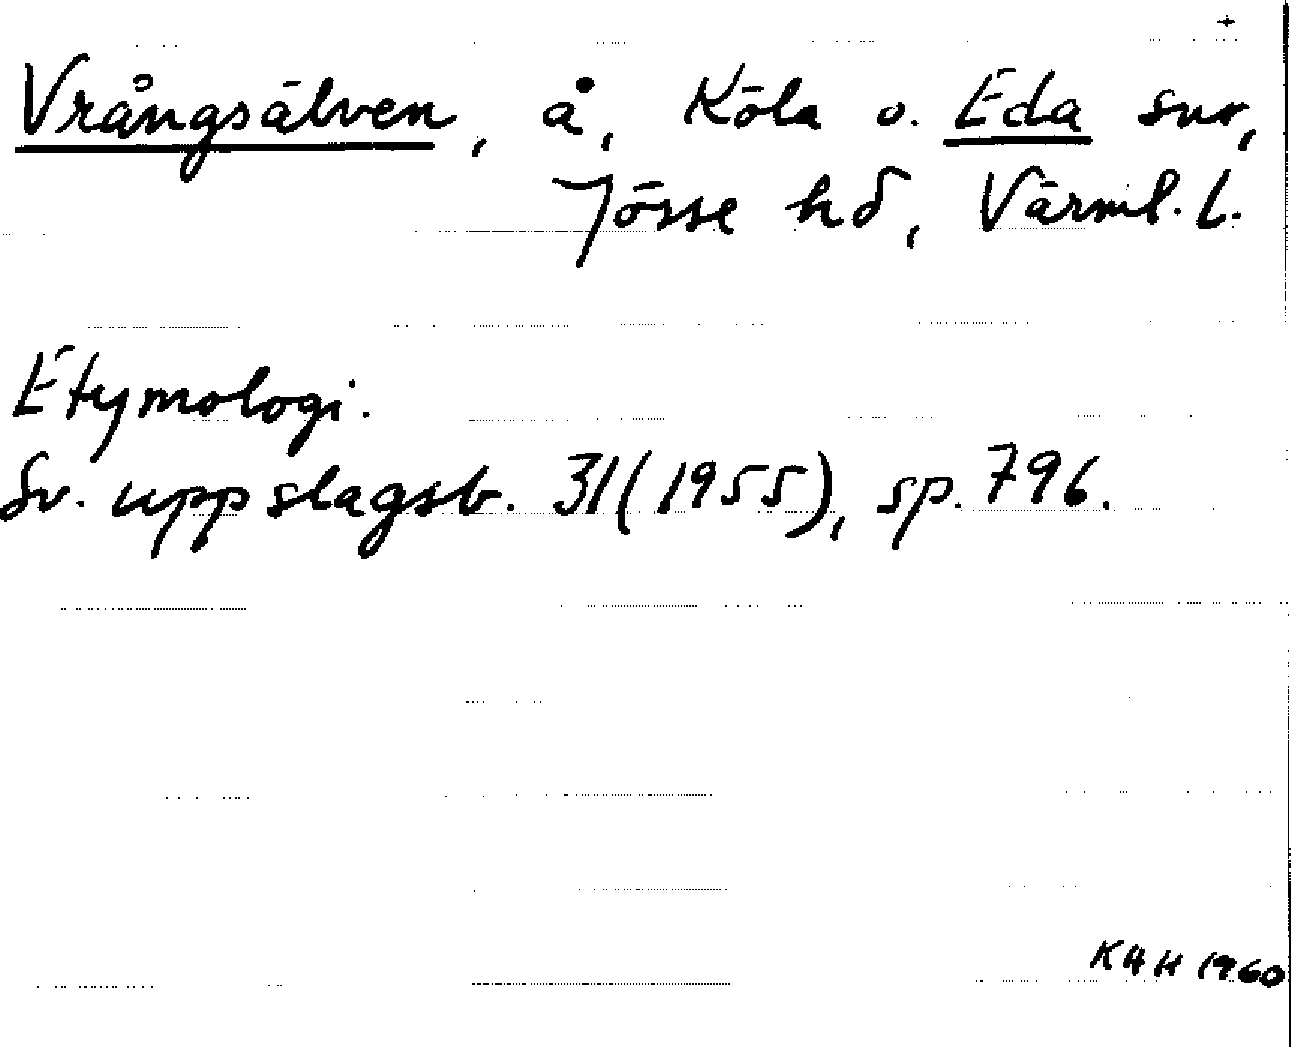 +
Vrångsälven, å, Köla o. Eda snr,
Jösse hd, Värml. l.
Etymologi.
Sv. uppslagsb. 31(1955), sp. 796.
KAH 1960